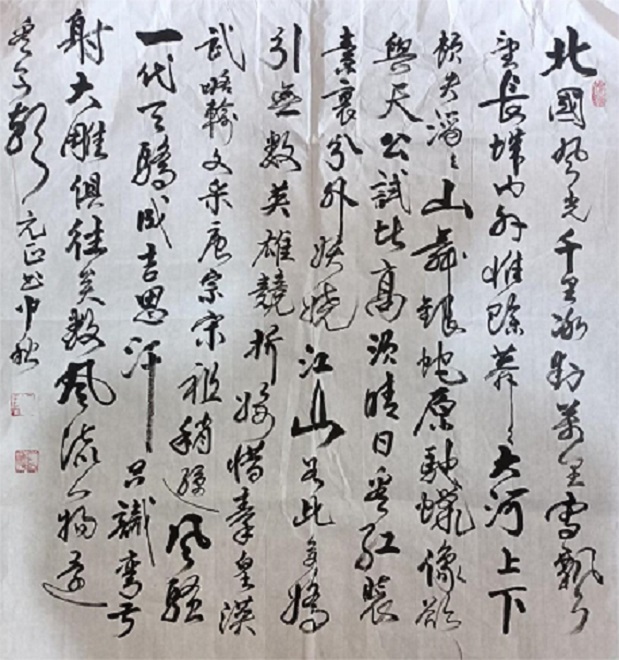 北國風光千里冰封萬里雪飄
望長城内外惟餘莽〻大河上下
頓失滔〻山舞銀蛇原馳蠟像欲
與天公試比高須晴日看紅裝
素裹分外妖嬈江山如此多嬌
引無數英雄競折腰惜秦皇漢
武略輸文采唐宗宋祖稍遜風騷
一代天驕成吉思汗只識彎弓
射大雕俱往矣數風流人物還
看今朝 元正书中秋